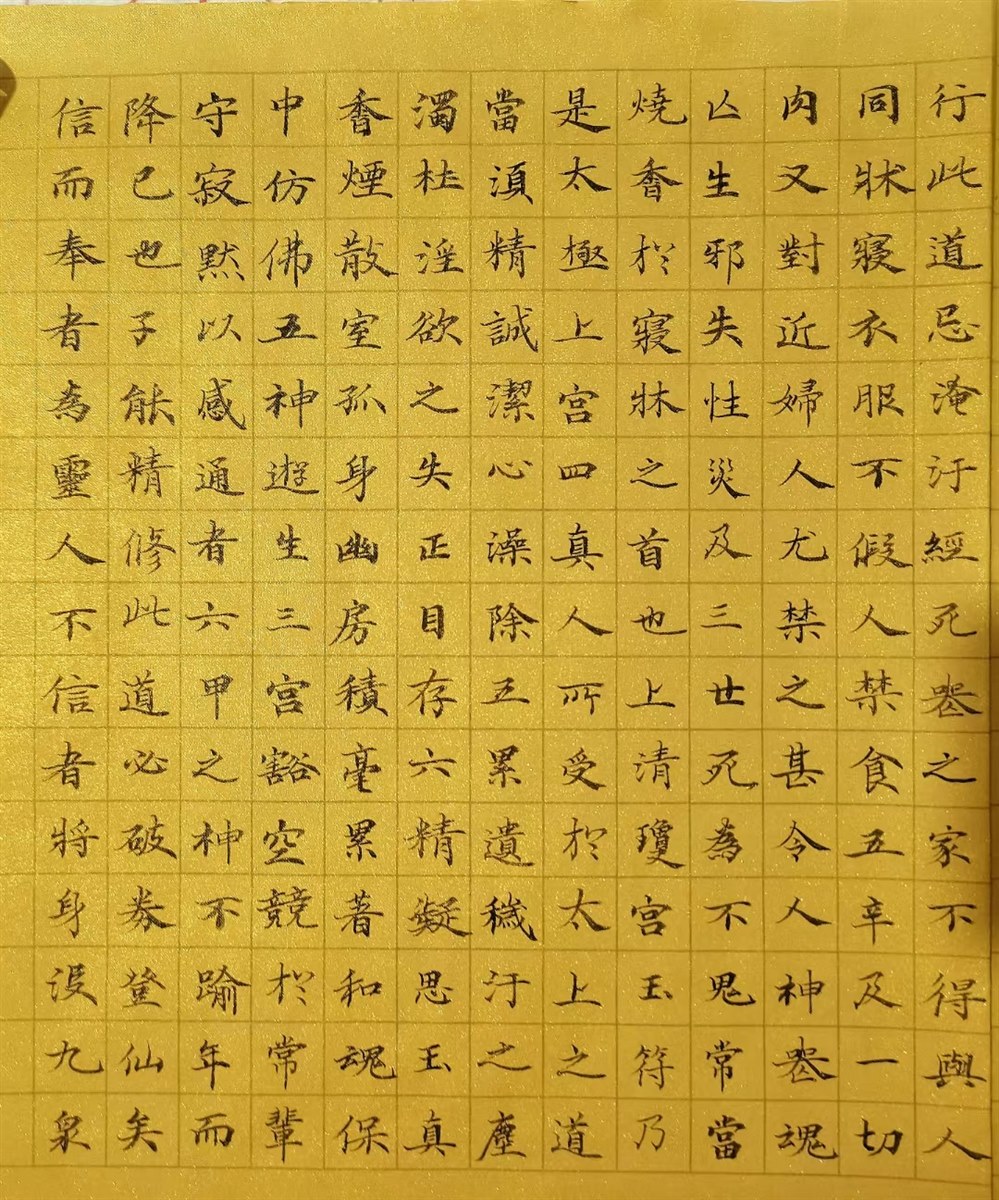 行此道忌淹汙經死喪之家不得與人
同牀寢衣服不假人禁食五辛及一切
肉又對近婦人尤禁之甚令人神喪魂
亡生邪失性災及三世死為不鬼常當
燒香於寢牀之首也上清瓊宮玉符乃
是太極上宮四真人所受於太上之道
當須精誠潔心澡除五累遺穢汙之塵
濁杜淫欲之失正目存六精凝思玉真
香煙散室孤身幽房積毫累著和魂保
中仿佛五神遊生三宮豁空競於常輩
守寂默以感通者六甲之神不踰年而
降已也子能精修此道必破券登仙矣
信而奉者為靈人不信者將身沒九泉